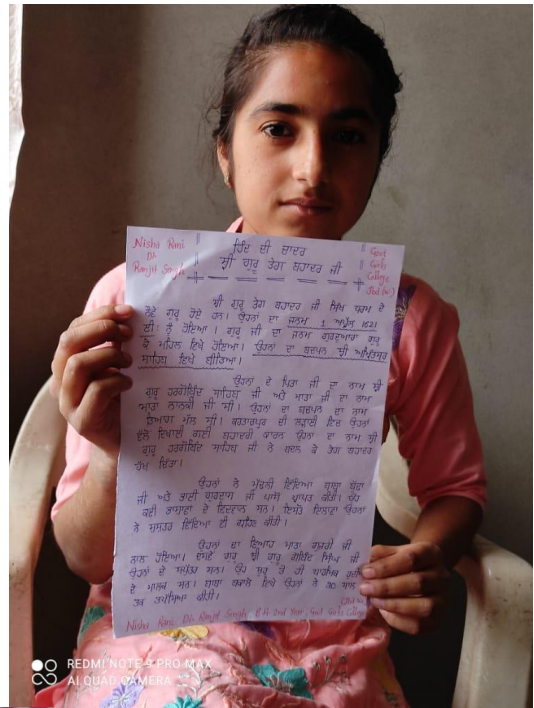 Nisha Rani
D/o
Ranjit Singh
ਹਿੰਦ ਦੀ ਚਾਦਰ
ਸ਼੍ਰੀ ਗੁਰੂ ਤੇਗ ਬਹਾਦਰ ਜੀ
Govt
Girls
College
ਸ਼੍ਰੀ ਗੁਰੂ ਤੇਗ ਬਹਾਦਰ ਜੀ ਸਿੱਖ ਧਰਮ ਦੇ
ਨੌਵੇਂ ਗੁਰੂ ਹੋਏ ਹਨ। ਉਹਨਾਂ ਦਾ ਜਨਮ 1 ਅਪ੍ਰੈਲ 1621
ਈ: ਨੂੰ ਹੋਇਆ। ਗੁਰੂ ਜੀ ਦਾ ਜਨਮ ਗੁਰਦੁਆਰਾ ਗੁਰੂ
ਕੇ ਮਹਿਲ ਵਿਖੇ ਹੋਇਆ। ਉਹਨਾਂ ਦਾ ਬਚਪਨ ਸ਼੍ਰੀ ਅਮ੍ਰਿਤਸਰ
ਸਾਹਿਬ ਵਿਖੇ ਬੀਤਿਆ।
ਉਹਨਾਂ ਦੇ ਪਿਤਾ ਜੀ ਦਾ ਨਾਮ ਸ਼੍ਰੀ
ਗੁਰੂ ਹਰਗੋਬਿੰਦ ਸਾਹਿਬ ਜੀ ਅਤੇ ਮਾਤਾ ਜੀ ਦਾ ਨਾਮ
ਮਾਤਾ ਨਾਨਕੀ ਜੀ ਸੀ। ਉਹਨਾਂ ਦਾ ਬਚਪਨ ਦਾ ਨਾਮ
ਤਿਆਗ ਮੱਲ ਸੀ। ਕਰਤਾਰਪੁਰ ਦੀ ਲੜਾਈ ਵਿਚ ਉਹਨਾਂ
ਵੱਲੋਂ ਦਿਖਾਈ ਗਈ ਬਹਾਦਰੀ ਕਾਰਨ ਉਹਨਾਂ ਦਾ ਨਾਮ ਸ਼੍ਰੀ
ਗੁਰੂ ਹਰਗੋਬਿੰਦ ਸਾਹਿਬ ਜੀ ਨੇ ਬਦਲ ਕੇ ਤੇਗ ਬਹਾਦਰ
ਰੱਖ ਦਿੱਤਾ।
ਉਹਨਾਂ ਨੇ ਮੁੱਢਲੀ ਵਿੱਦਿਆ ਬਾਬਾ ਬੁੱਢਾ
ਜੀ ਅਤੇ ਭਾਈ ਗੁਰਦਾਸ ਜੀ ਪਾਸੋਂ ਪ੍ਰਾਪਤ ਕੀਤੀ। ਉਹ
ਕਈ ਭਾਸ਼ਾਵਾਂ ਦੇ ਵਿਦਵਾਨ ਸਨ। ਇਸਤੋਂ ਇਲਾਵਾ ਉਹਨਾਂ
ਨੇ ਸ਼ਸਤਰ ਵਿੱਦਿਆ ਵੀ ਗ੍ਰਹਿਣ ਕੀਤੀ।
ਉਹਨਾਂ ਦਾ ਵਿਆਹ ਮਾਤਾ ਗੁਜਰੀ ਜੀ
ਨਾਲ ਹੋਇਆ। ਦਸਵੇਂ ਗੁਰੂ ਸ਼੍ਰੀ ਗੁਰੂ ਗੋਬਿੰਦ ਸਿੰਘ ਜੀ
ਉਹਨਾਂ ਦੇ ਸਪੁੱਤਰ ਸਨ। ਉਹ ਸ਼ੁਰੂ ਤੋਂ ਹੀ ਧਾਰਮਿਕ ਰੁਚੀ
ਦੇ ਮਾਲਕ ਸਨ। ਬਾਬਾ ਬਕਾਲੇ ਵਿਖੇ ਉਹਨਾਂ ਨੇ 20 ਸਾਲ
ਤਕ ਤਪੱਸਿਆ ਕੀਤੀ।
Nisha Rani D/o Ranjit Singh B.A 2nd Year, Govt Girls College
REDMI NOTE 9 PRO MAX
AI QUAD CAMERA